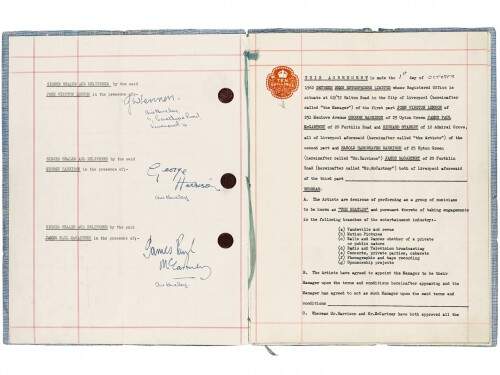 SIGNED SEALED AND DELIVERED by the said
JOHN WINSTON LENNON in the presence of:-
J W Lennon
SIGNED SEALED AND DELIVERED by the said
GEORGE HARRISON in the presence of:-
George
Harrison
SIGNED SEALED AND DELIVERED by the said
JAMES PAUL McCARTNEY in the presence of:-
James Paul
McCartney
TEN
THIS AGREEMENT is made the 1st day of OCTOBER
1962 BETWEEN NEMS ENTERPRISES LIMITED whose Registered Office is
situate at Walton Road in the City of Liverpool (hereinafter
called "the Manager") of the first part JOHN WINSTON LENNON of
251 Menlove Avenue GEORGE HARRISON of 25 Upton Green JAMES PAUL
McCARTNEY of 20 Forthlin Road and RICHARD STARKEY of 10 Admiral Grove,
all of Liverpool aforesaid (hereinafter called "the Artists") of the
second part and HAROLD HARGREAVES HARRISON of 25 Upton Green
(hereinafter called "Mr.Harrison") JAMES McCARTNEY of 20 Forthlin
Road (hereinafter called "Mr.McCartney") both of Liverpool aforesaid
of the third part
WHEREAS:
A. The Artists are desirous of performing as a group of musicians
to be known as "THE BEATLES" and pursuant thereto of taking engagements
in the following branches of the entertainment industry:-
(a) Vaudeville and revue
(b) Motion Pictures
(c) Balls and Dances whether of a private
or public nature
(d) Radio and Television broadcasting
(e) Concerts, private parties, cabarets
(f) Phonographic and tape recording
(g) Sponsorship projects
B. The Artists have agreed to appoint the Manager to be their
Manager upon the terms and conditions hereinafter appearing and the
Manager has agreed to act as such Manager upon the said terms and
conditions
C. Whereas Mr.Harrison and Mr.McCartney have both approved all the